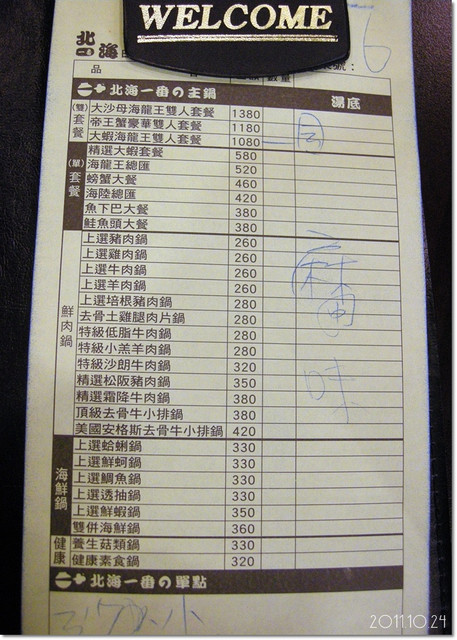 WELCOME
北海
6
品 數量 號：
北海一番の主鍋 湯底
(雙)套餐
大沙母海龍王雙人套餐 1380
帝王蟹豪華雙人套餐 1180
大蝦海龍王雙人套餐 1080
(單)套餐
精選大蝦套餐 580
海龍王總匯 520
螃蟹大餐 460
海陸總匯 420
魚下巴大餐 380
鮭魚頭大餐 380
鮮肉鍋
上選豬肉鍋 260
上選雞肉鍋 260
上選牛肉鍋 260
上選羊肉鍋 260
上選培根豬肉鍋 280
去骨土雞腿肉片鍋 280
特級低脂牛肉鍋 280
特級小羔羊肉鍋 280
特級沙朗牛肉鍋 320
精選松阪豬肉鍋 350
精選霜降牛肉鍋 380
頂級去骨牛小排鍋 380
美國安格斯去骨牛小排鍋 420
海鮮鍋
上選蛤蜊鍋 330
上選鮮蚵鍋 330
上選鯛魚鍋 330
上選透抽鍋 330
上選鮮蝦鍋 350
雙併海鮮鍋 360
健康
養生菇類鍋 330
健康素食鍋 320
北海一番の單點
2011.10.24